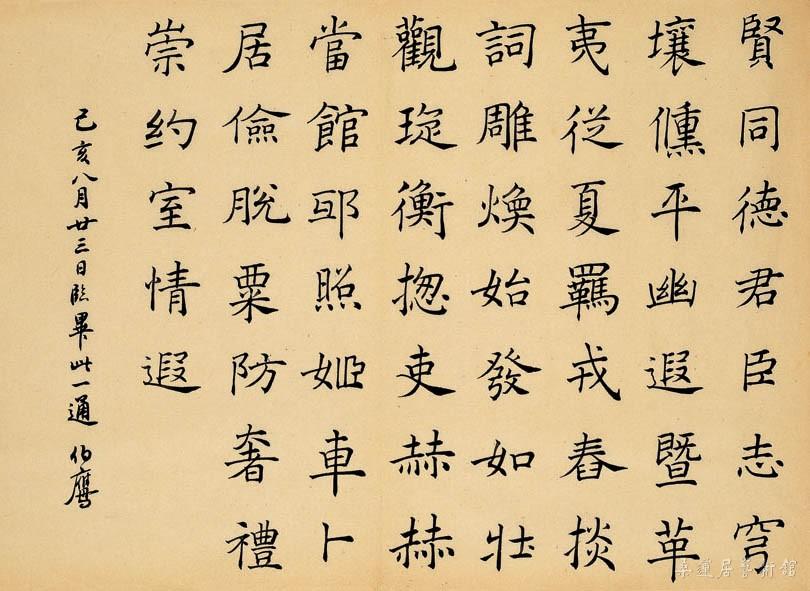 賢同德君臣志穹
壤平幽遐暨革
夷従夏羈戎舂掞
詞雕煥始發如壯
觀琁衡揔吏赫赫
當館照姬車卜
居儉脫粟防奢禮
崇約室情遐
己亥八月廿三日臨畢此一通 伯鷹
桑蓮居藝術館